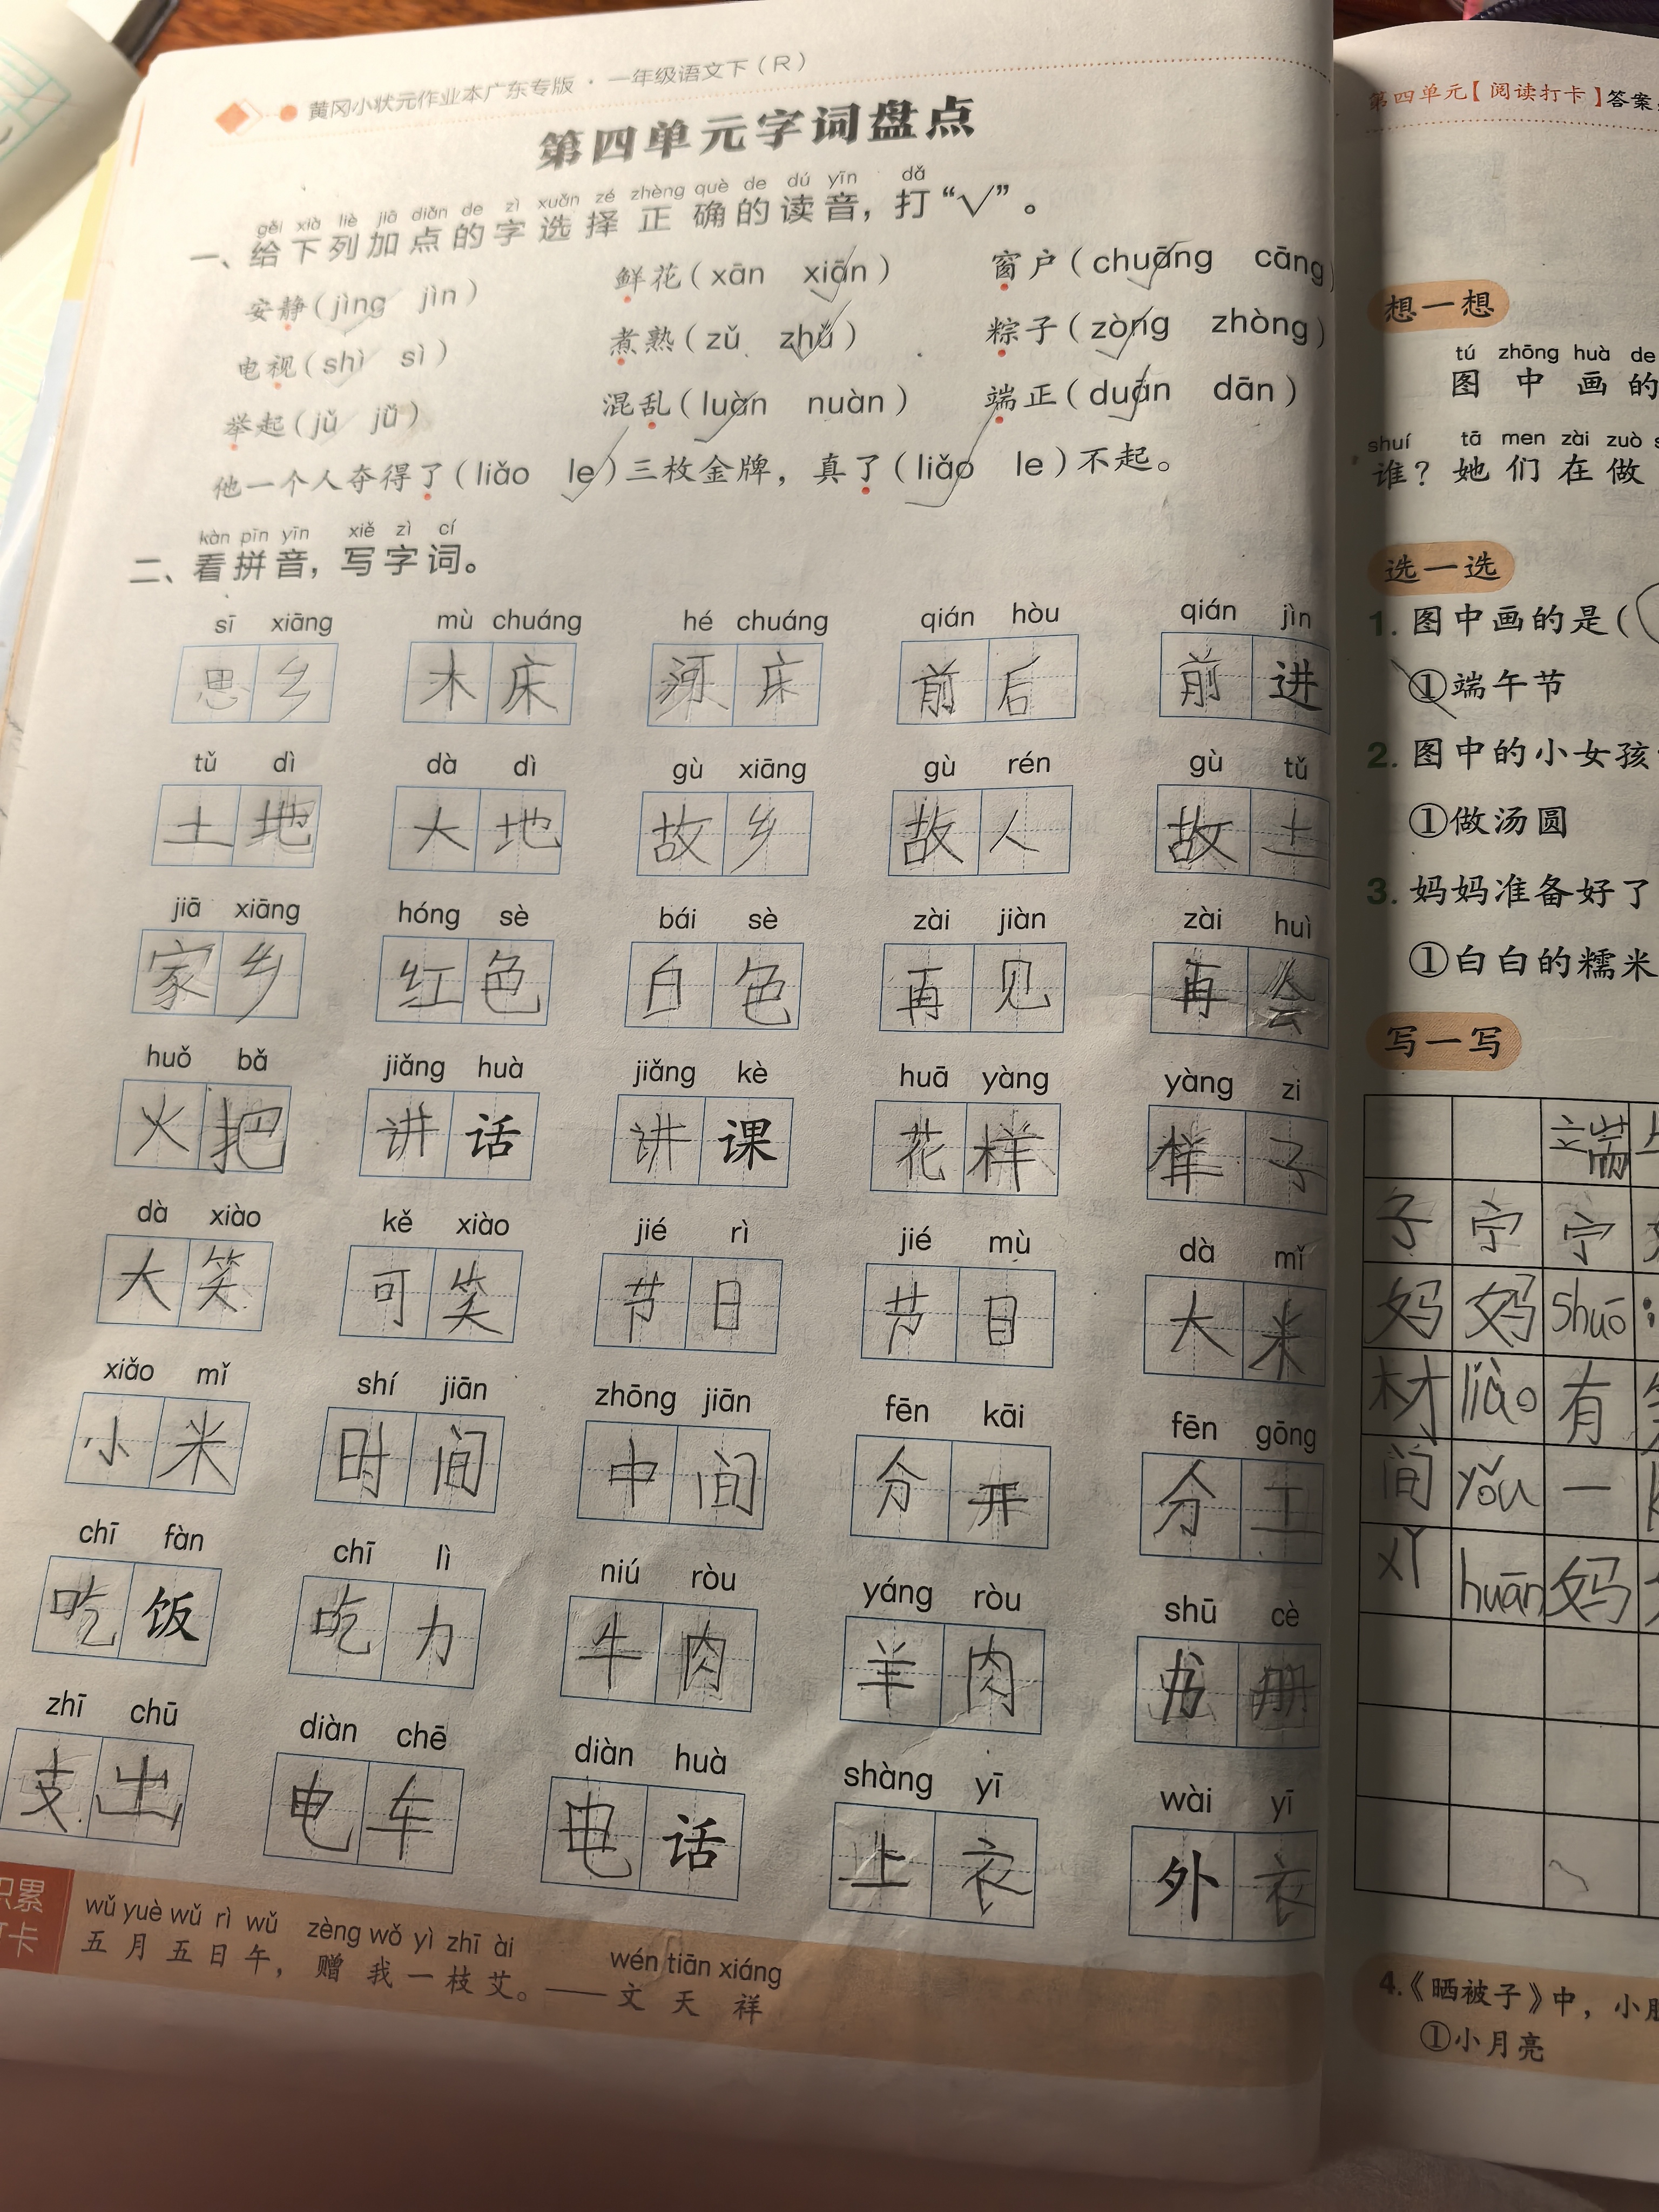 黄冈小状元作业本广东专版·一年级语文下（R）
第四单元字词盘点
gěi xià liè jiā diǎn de zì xuǎn zé zhèng què de dú yīn dǎ
一、给下列加点的字选择正确的读音，打“√”。
安静（jìng jìn） 鲜花（xān xiān） 窗户（chuāng cāng）
电视（shì sì） 煮熟（zǔ zhǔ） 粽子（zòng zhòng）
举起（jǔ jǚ） 混乱（luàn nuàn） 端正（duān dān）
他一个人夺得了（liǎo le）三枚金牌，真了（liǎo le）不起。
kàn pīn yīn xiě zì cí
二、看拼音，写字词。
sī xiāng mù chuáng hé chuáng qián hòu qián jìn
思乡 木床 河床 前后 前进
tǔ dì dà dì gù xiāng gù rén gù tǔ
土地 大地 故乡 故人 故土
jiā xiāng hóng sè bái sè zài jiàn zài huì
家乡 红色 白色 再见 再会
huǒ bǎ jiǎng huà jiǎng kè huā yàng yàng zi
火把 讲话 讲课 花样 样子
dà xiào kě xiào jié rì jié mù dà mǐ
大笑 可笑 节日 节目 大米
xiǎo mǐ shí jiān zhōng jiān fēn kāi fēn gōng
小米 时间 中间 分开 分工
chī fàn chī lì niú ròu yáng ròu shū cè
吃饭 吃力 牛肉 羊肉 书册
zhī chū diàn chē diàn huà shàng yī wài yī
支出 电车 电话 上衣 外衣
积累
打卡
wǔ yuè wǔ rì wǔ zèng wǒ yì zhī ài
五月五日午，赠我一枝艾。——文天祥
wén tiān xiáng
第四单元【阅读打卡】答案
想一想
tú zhōng huà de
图中画的
shuí tā men zài zuò
谁？她们在做
选一选
1. 图中画的是（
①端午节
2. 图中的小女孩
①做汤圆
3. 妈妈准备好了
①白白的糯米
写一写
端
子 宁 宁
妈 妈 shuō ：
材 liào 有
间 yǒu 一
丫 huān 妈
4.《晒被子》中，小
①小月亮